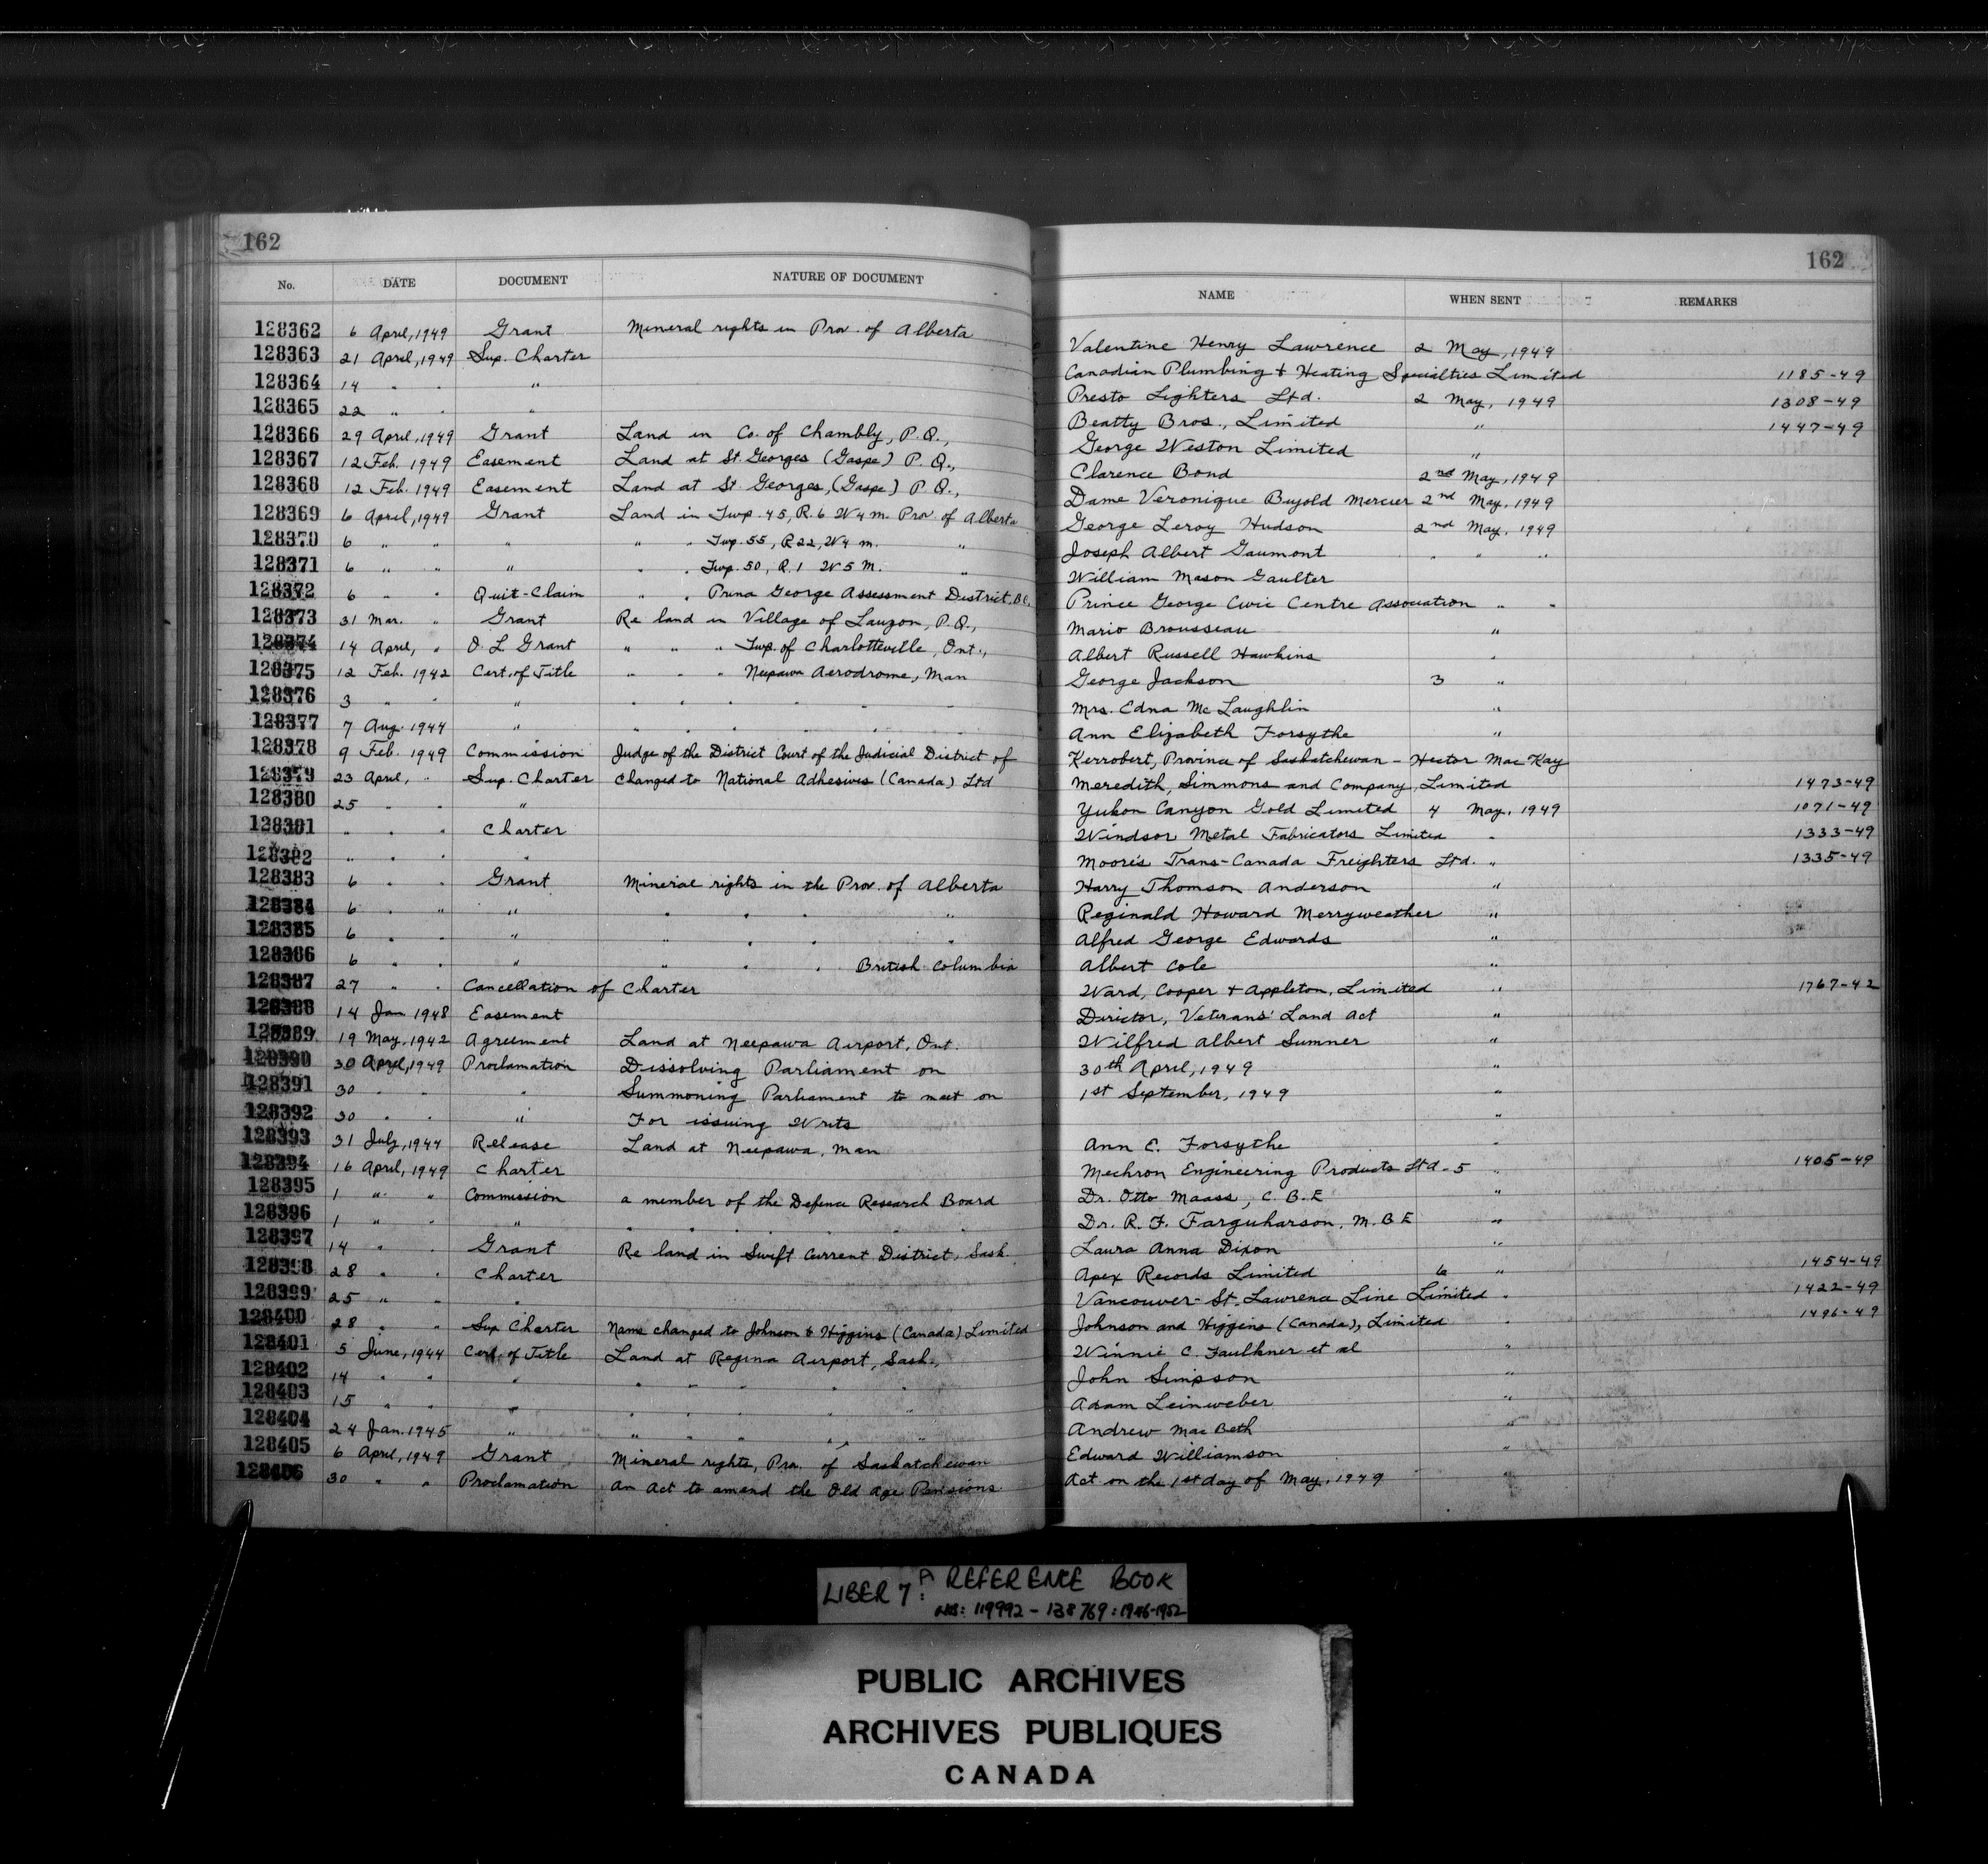 162
162
No. DATE DOCUMENT NATURE OF DOCUMENT NAME WHEN SENT REMARKS
128362 6 April, 1949 Grant Mineral rights in Prov. of Alberta Valentine Henry Lawrence 2 May, 1949
128363 21 April, 1949 Sup. Charter Canadian Plumbing & Heating Specialties Limited 1185-49
128364 14 " " " Presto Lighters Ltd. 2 May, 1949 1308-49
128365 22 " " " Beatty Bros., Limited " 1447-49
128366 29 April, 1949 Grant Land in Co. of Chambly, P.Q., George Weston Limited "
128367 12 Feb. 1949 Easement Land at St. Georges (Gaspe) P.Q., Clarence Bond 2nd May, 1949
128368 12 Feb. 1949 Easement Land at St. Georges, (Gaspe) P.Q., Dame Veronique Bujold Mercier 2nd May, 1949
128369 6 April, 1949 Grant Land in Twp. 45, R. 6 W 4 m. Prov. of Alberta George Leroy Hudson 2nd May, 1949
128370 6 " " " " " Twp. 55, R 22, W 4 m. " Joseph Albert Gaumont " " "
128371 6 " " " " " Twp. 50, R. 1 W 5 M. " William Mason Gaulter
128372 6 " " Quit-Claim " " Prince George Assessment District, B.C. Prince George Civic Centre Association " "
128373 31 Mar. " Grant Re land in Village of Lauzon, P.Q., Mario Brousseau "
128374 14 April, " O. L. Grant " " " Twp. of Charlotteville, Ont., Albert Russell Hawkins "
128375 12 Feb. 1942 Cert. of Title " " " Neepawa Aerodrome, Man George Jackson 3 "
128376 3 " " " " " " " " " Mrs. Edna McLaughlin "
128377 7 Aug. 1944 " " " " " " " Ann Elizabeth Forsythe "
128378 9 Feb. 1949 Commission Judge of the District Court of the Judicial District of Kerrobert, Province of Saskatchewan - Hector MacKay
128379 23 April, " Sup. Charter Changed to National Adhesives (Canada) Ltd Meredith, Simmons and Company, Limited 1473-49
128380 25 " " " Yukon Canyon Gold Limited 4 May, 1949 1071-49
128381 " " " Charter Windsor Metal Fabricators Limited " 1333-49
128382 " " " " Moore's Trans-Canada Freighters Ltd. " 1335-49
128383 6 " " Grant Mineral rights in the Prov. of Alberta Harry Thomson Anderson "
128384 6 " " " " " " " Reginald Howard Merryweather "
128385 6 " " " " " " " Alfred George Edwards "
128386 6 " " " " " " British Columbia Albert Cole "
128387 27 " " Cancellation of Charter Ward, Cooper & Appleton, Limited " 1767-42
128388 14 Jan 1948 Easement Director, Veterans' Land Act "
128389 19 May, 1942 Agreement Land at Neepawa Airport, Ont. Wilfred Albert Sumner "
128390 30 April, 1949 Proclamation Dissolving Parliament on 30th April, 1949 "
128391 30 " " " Summoning Parliament to meet on 1st September, 1949 "
128392 30 " " " For issuing Writs "
128393 31 July, 1944 Release Land at Neepawa, Man Ann E. Forsythe "
128394 16 April, 1949 Charter Mechron Engineering Products Ltd - 5 " 1405-49
128395 1 " " Commission a member of the Defence Research Board Dr. Otto Maass, C.B.E "
128396 1 " " " " " " " " " Dr. R. F. Farquharson, M.B.E "
128397 14 " " Grant Re land in Swift Current District, Sask. Laura Anna Dixon "
128398 28 " " Charter Apex Records Limited 6 " 1454-49
128399 25 " " " Vancouver-St. Lawrence Line Limited " 1422-49
128400 28 " " Sup Charter Name changed to Johnson & Higgins (Canada) Limited Johnson and Higgins (Canada), Limited " 1496-49
128401 5 June, 1944 Cert. of Title Land at Regina Airport, Sask., Winnie C. Faulkner et al "
128402 14 " " " " " " " " John Simpson "
128403 15 " " " " " " " " Adam Leinweber "
128404 24 Jan. 1945 " " " " " " Andrew MacBeth "
128405 6 April, 1949 Grant Mineral rights, Prov. of Saskatchewan Edward Williamson "
128406 30 " " Proclamation An Act to amend the Old Age Pensions Act on the 1st day of May, 1949 "
LIBER 7: A REFERENCE BOOK
NOS: 119992 - 138769 : 1946-1952
PUBLIC ARCHIVES
ARCHIVES PUBLIQUES
CANADA